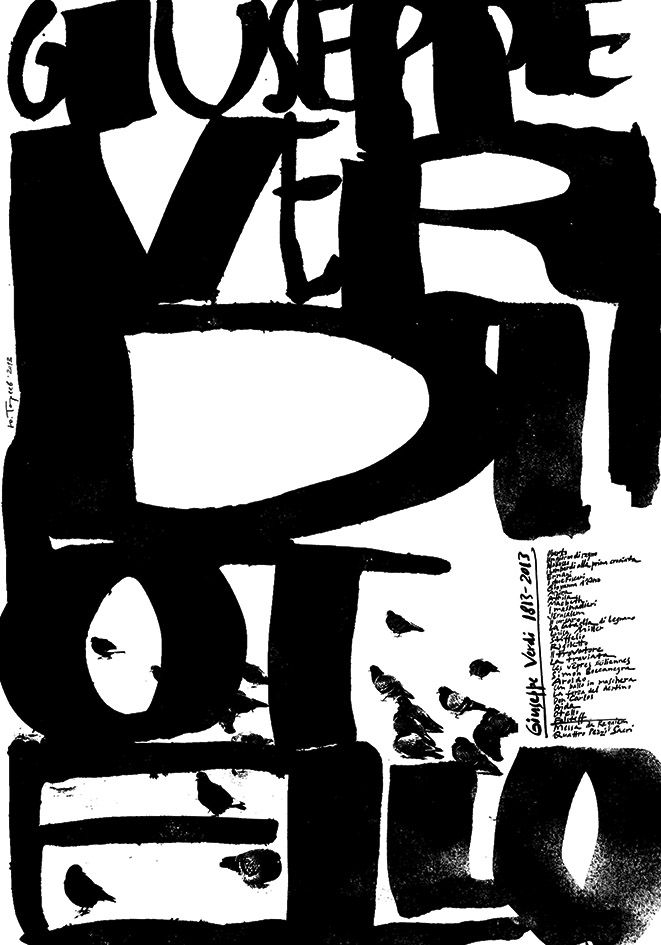 GIUSEPPE
VER
DI
OT
ELLO
Giuseppe Verdi 1813-2013
Oberto
Un giorno di regno
Nabucco
I Lombardi alla prima crociata
Ernani
I due Foscari
Giovanna d'Arco
Alzira
Attila
Macbeth
I masnadieri
Jerusalem
Il corsaro
La battaglia di Legnano
Luisa Miller
Stiffelio
Rigoletto
Il trovatore
La traviata
Les vepres siciliennes
Simon Boccanegra
Aroldo
Un ballo in maschera
La forza del destino
Don Carlos
Aida
Otello
Falstaff
Messa da Requiem
Quattro Pezzi Sacri